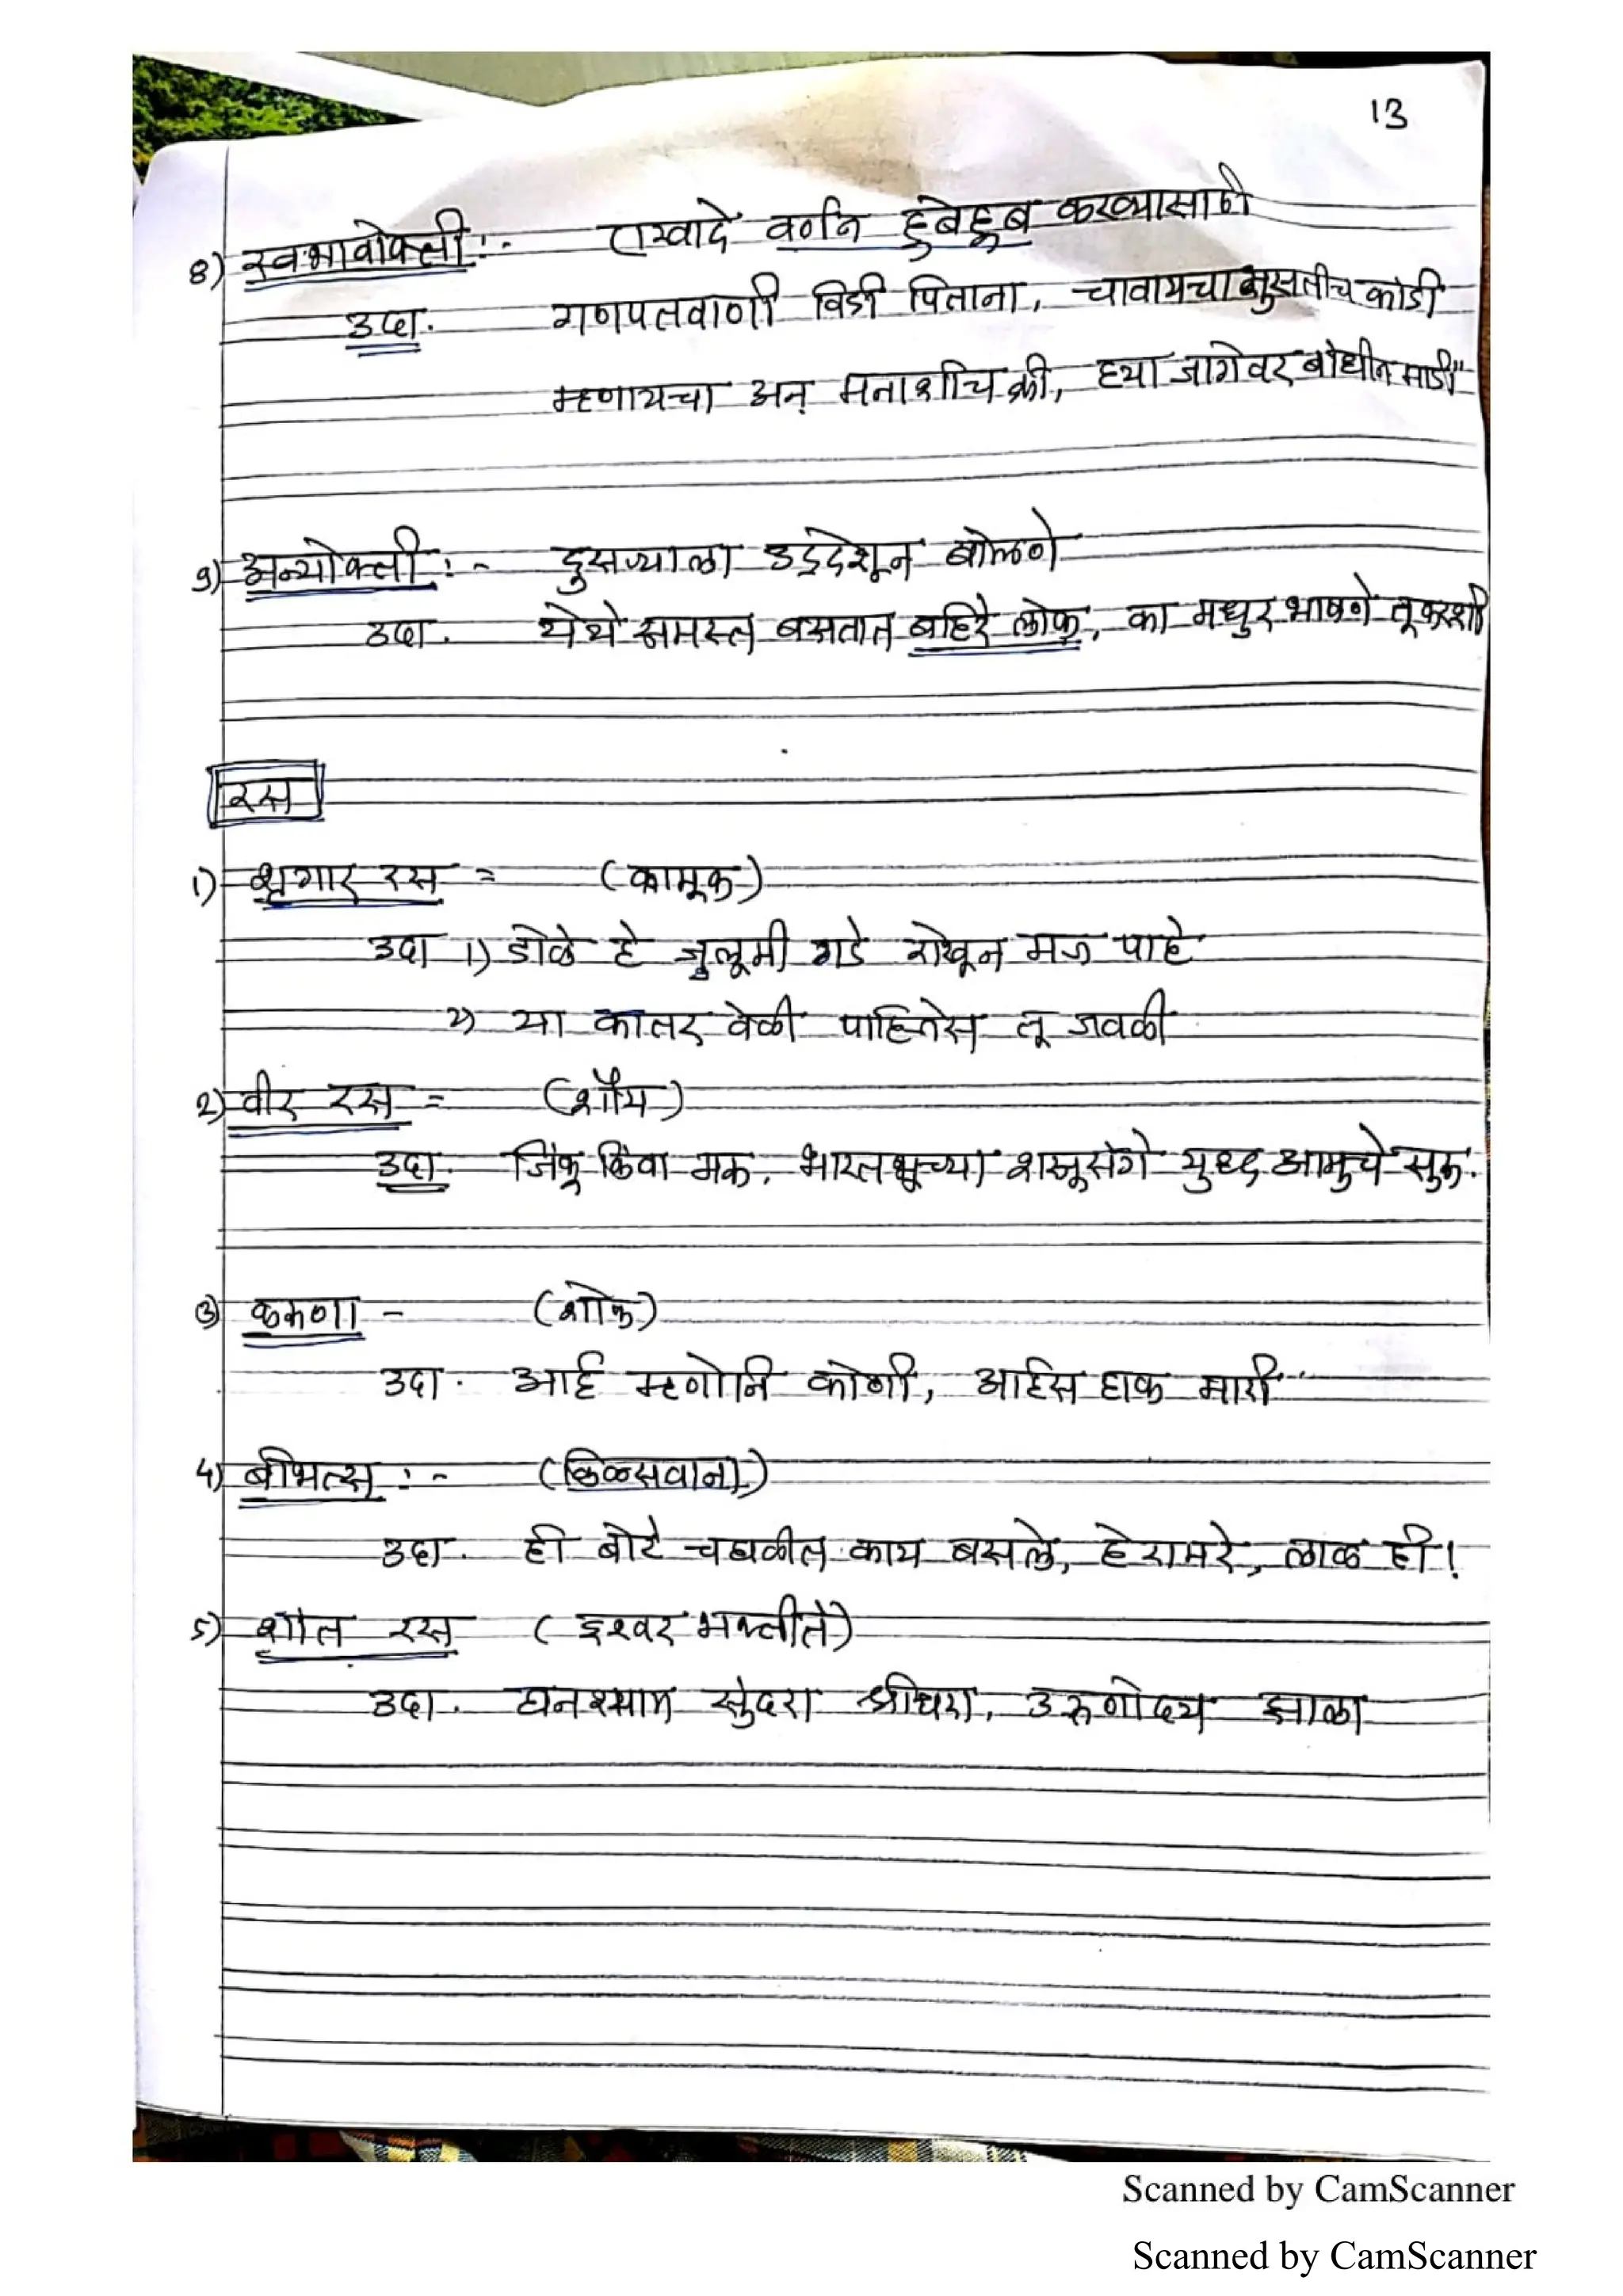 13
8) स्वभावोक्ती :- एखादे वर्णन हुबेहूब करण्यासाठी
उदा. गणपतवाणी विडी पिताना, चावायचा नुसतीच काडी
म्हणायचा अन् मनाशीच की, ह्या जागेवर बांधीन माडी"
9) अन्योक्ती :- दुसऱ्याला उद्देशून बोलणे
उदा. येथे समस्त बसतात बहिरे लोक, का मधुर भाषणे तू करशी
रस
1) शृगार रस = (कामूक)
उदा 1) डोळे हे जुलूमी गडे रोखून मज पाहे
2) या कातर वेळी पाहिजेस तू जवळी
2) वीर रस = (शौर्य)
उदा. जिंकू किंवा मरू, भारतभूच्या शत्रूसंगे युध्द आमुचे सुरू.
3) करुणा - (शोक)
उदा. आई म्हणोनि कोणी, आईस हाक मारी
4) बीभत्स :- (किळसवाना)
उदा. ही बोटे चघळीत काय बसले, हे राम रे, लाळ ही!
5) शांत रस ( इश्वर भक्तीते)
उदा. घनश्याम सुंदरा श्रीधरा, उरुणोदय झाला
Scanned by CamScanner
Scanned by CamScanner